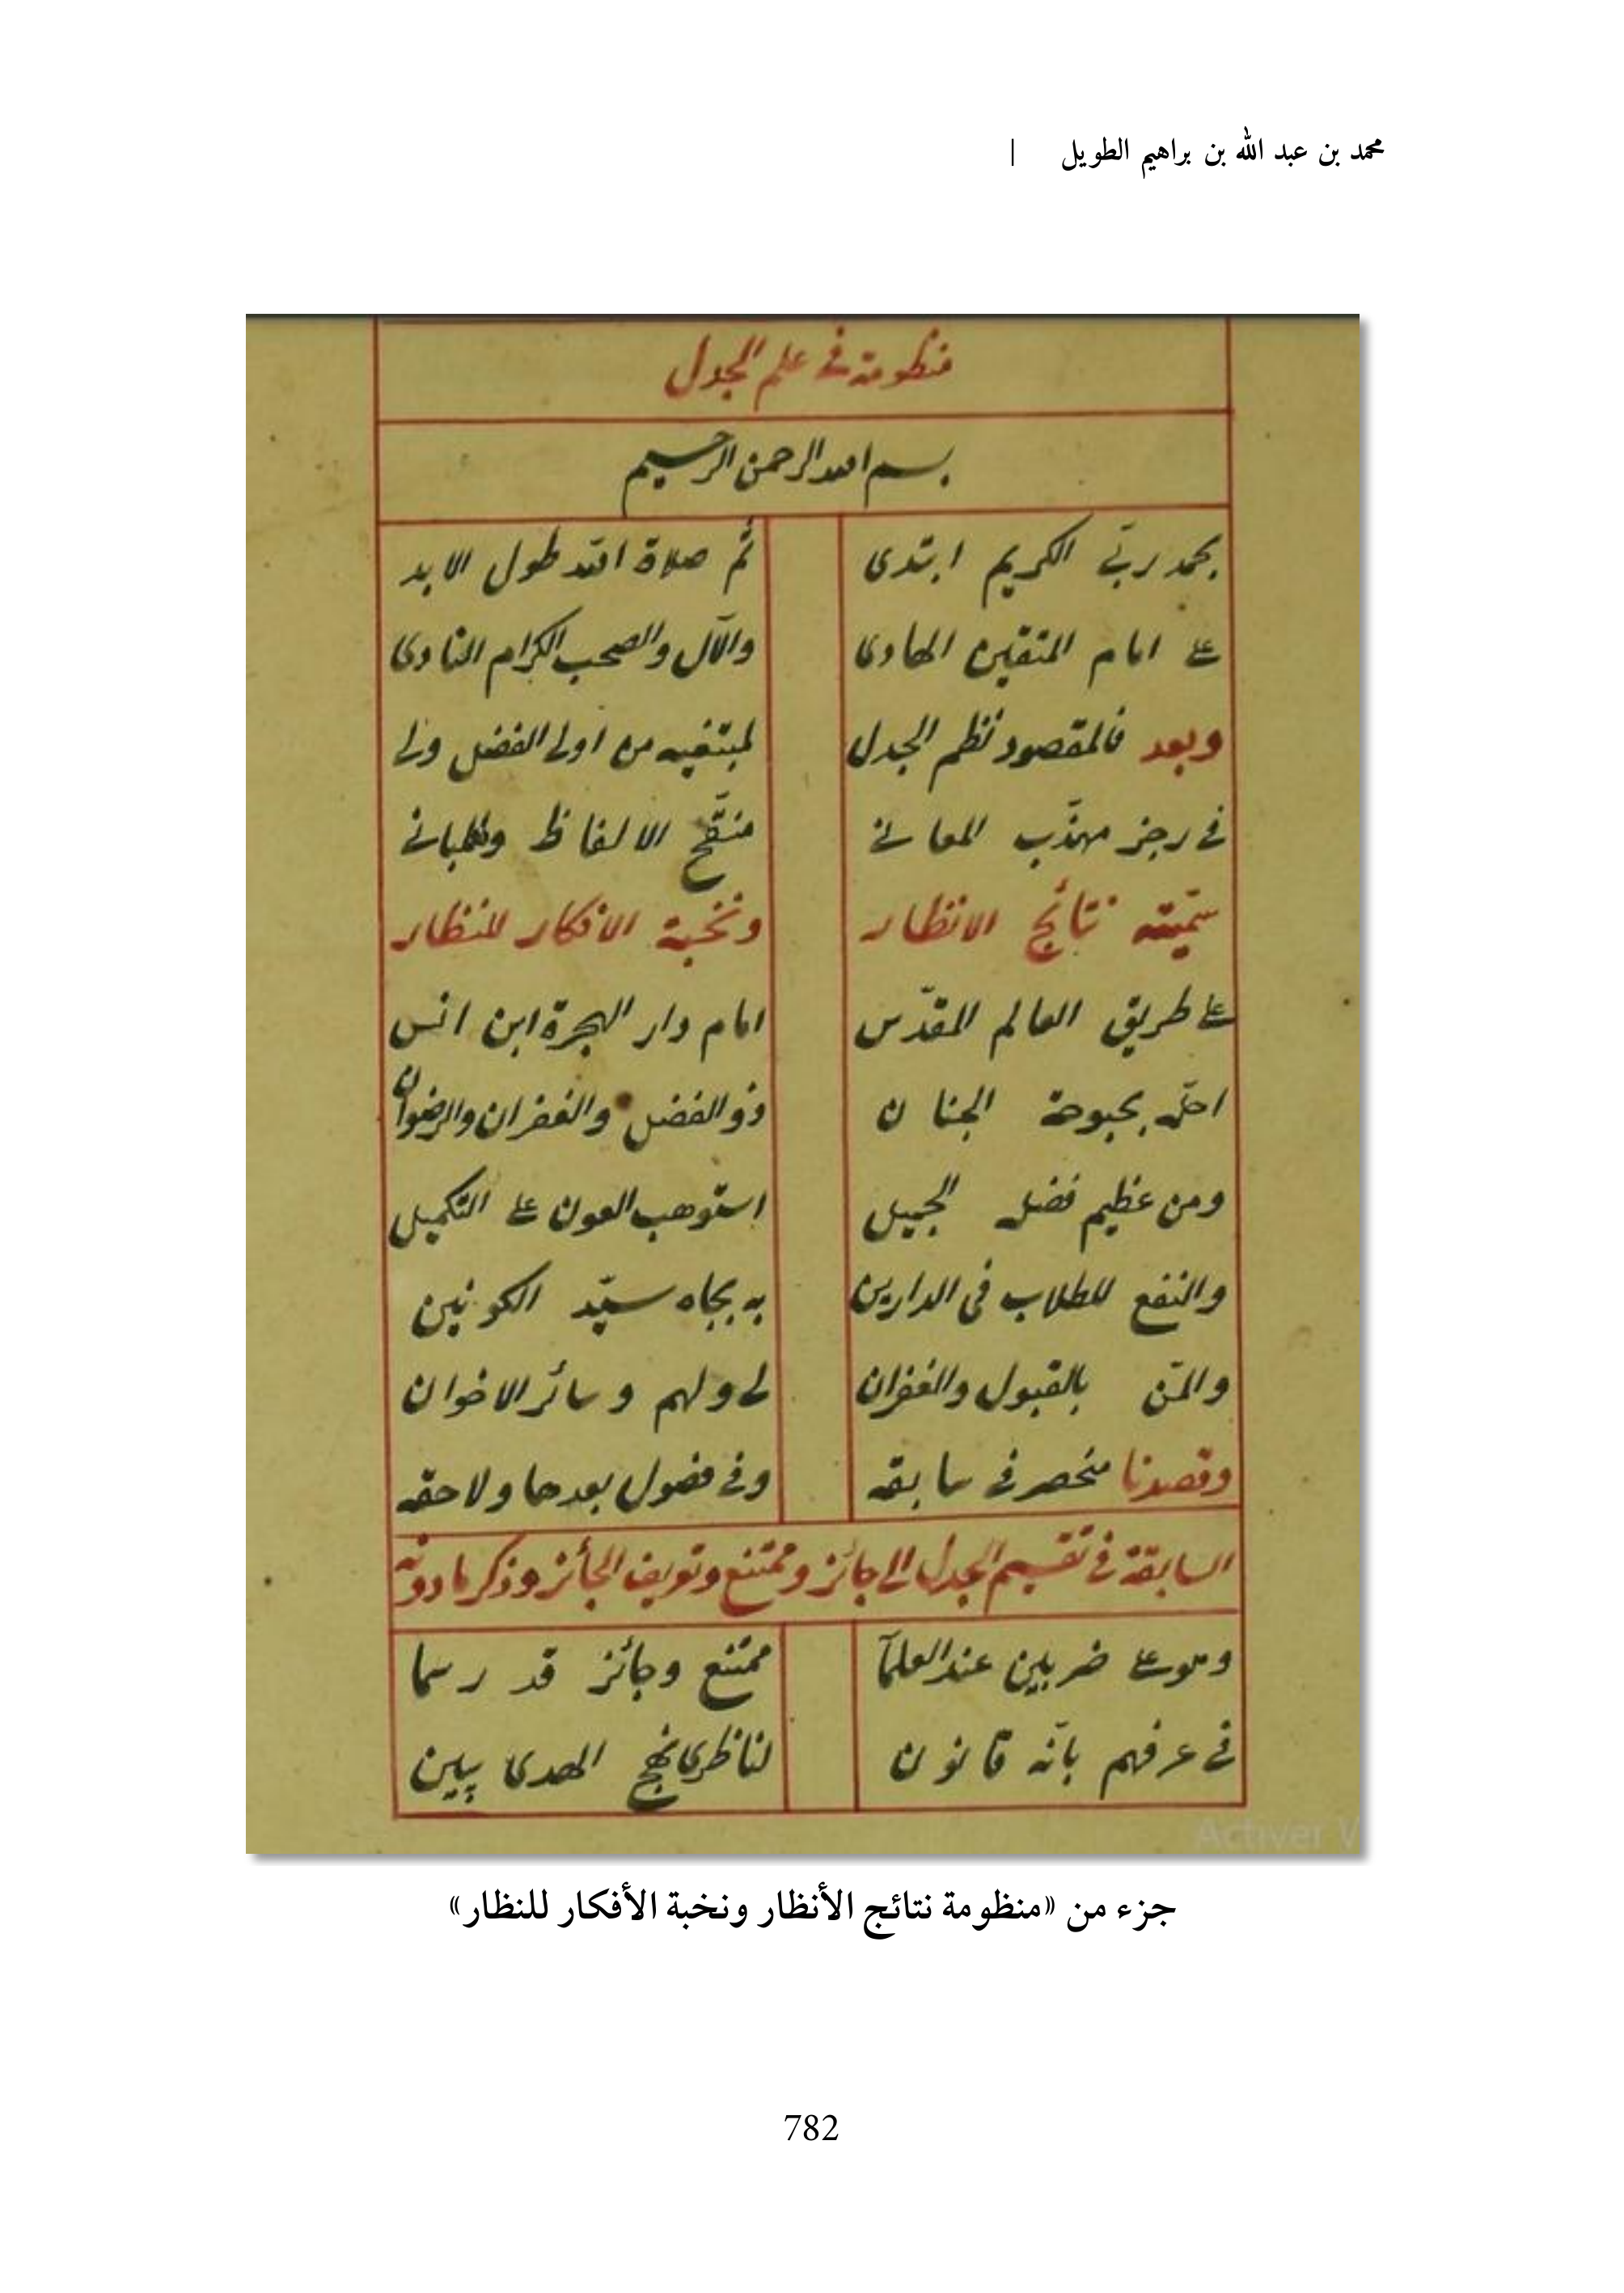 محمد بن عبد الله بن براهيم الطويل |
منظومة في علم الجدل
بسم الله الرحمن الرحيم
بحمد ربّي الكريم ابتدى ثم صلاة الله طول الابد
على امام المتقين الهادى والآل والصحب الكرام النادى
وبعد فالمقصود نظم الجدل لمبتغيه من اولى الفضل ولى
في رجز مهذّب المعاني منقّح الالفاظ
سمّيته نتائج الانظار ونخبة الافكار للنظار
على طريق العالم المقدّس امام دار الهجرة ابن انس
احلّه بحبوحة الجنان ذو الفضل والغفران والرضوان
ومن عظيم فضله الجميل استوهب العون على التكميل
والنفع للطلاب فى الدارين به بجاه سيّد الكونين
والمنّ بالقبول والغفران لى ولهم وسائر الاخوان
وقصدنا منحصر في سابقه وفي فصول بعدها ولاحقه
السابقة في تقسيم الجدل الى جائز وممتنع وتعريف الجائز وذكر مادونه
وهو على ضربين عند العلمآ ممتنع وجائز قد رسما
في عرفهم بانّه قانون لناظرى نهج الهدى يبين
Activer W
جزء من «منظومة نتائج الأنظار ونخبة الأفكار للنظار»
782